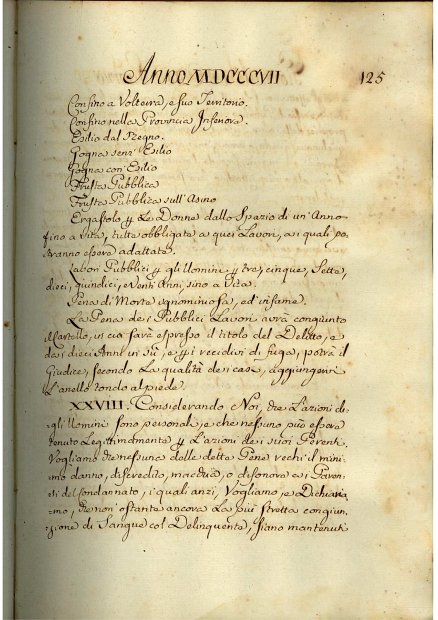 Anno MDCCCVII 125
Confino a Volterra, e suo Territorio.
Confino nella Provincia Inferiore.
Esilio dal Regno.
Gogna senz'Esilio
Gogna con Esilio
Frusta Pubblica
Frusta Pubblica sull'Asino
Ergastolo p le Donne dallo Spazio di un'Anno
fino a Vita, tutte obbligate a quei Lavori, ai quali po-
tranno essere adattate.
Lavori Pubblici p gli Uomini p tre, cinque, Sette,
dieci, quindici, e Venti Anni, sino a Vita.
Pena di Morte ignominiosa, ed infame.
La Pena dei Pubblici Lavori avrà congiunto
il Cartello, in cui sarà espresso il titolo del Delitto, e
dai dieci Anni in Sù, e p i recidivi di fuga, potrà il
Giudice, secondo la qualità dei casi, aggiungervi
l'anello tondo al piede.
XXVIII. Considerando Noi, che l'azioni de-
gli Uomini sono personali, e che nessuno può essere
tenuto Legittimamente p l'azioni dei suoi Parenti,
Vogliamo che nessuna delle dette Pene rechi il mini-
mo danno, discredito, macchia, o disonore ai Paren-
ti del Condannato, i quali anzi, Vogliamo, e Dichiaria-
mo, che non ostante ancora la più stretta congiun-
zione di Sangue col Delinquente, siano mantenuti